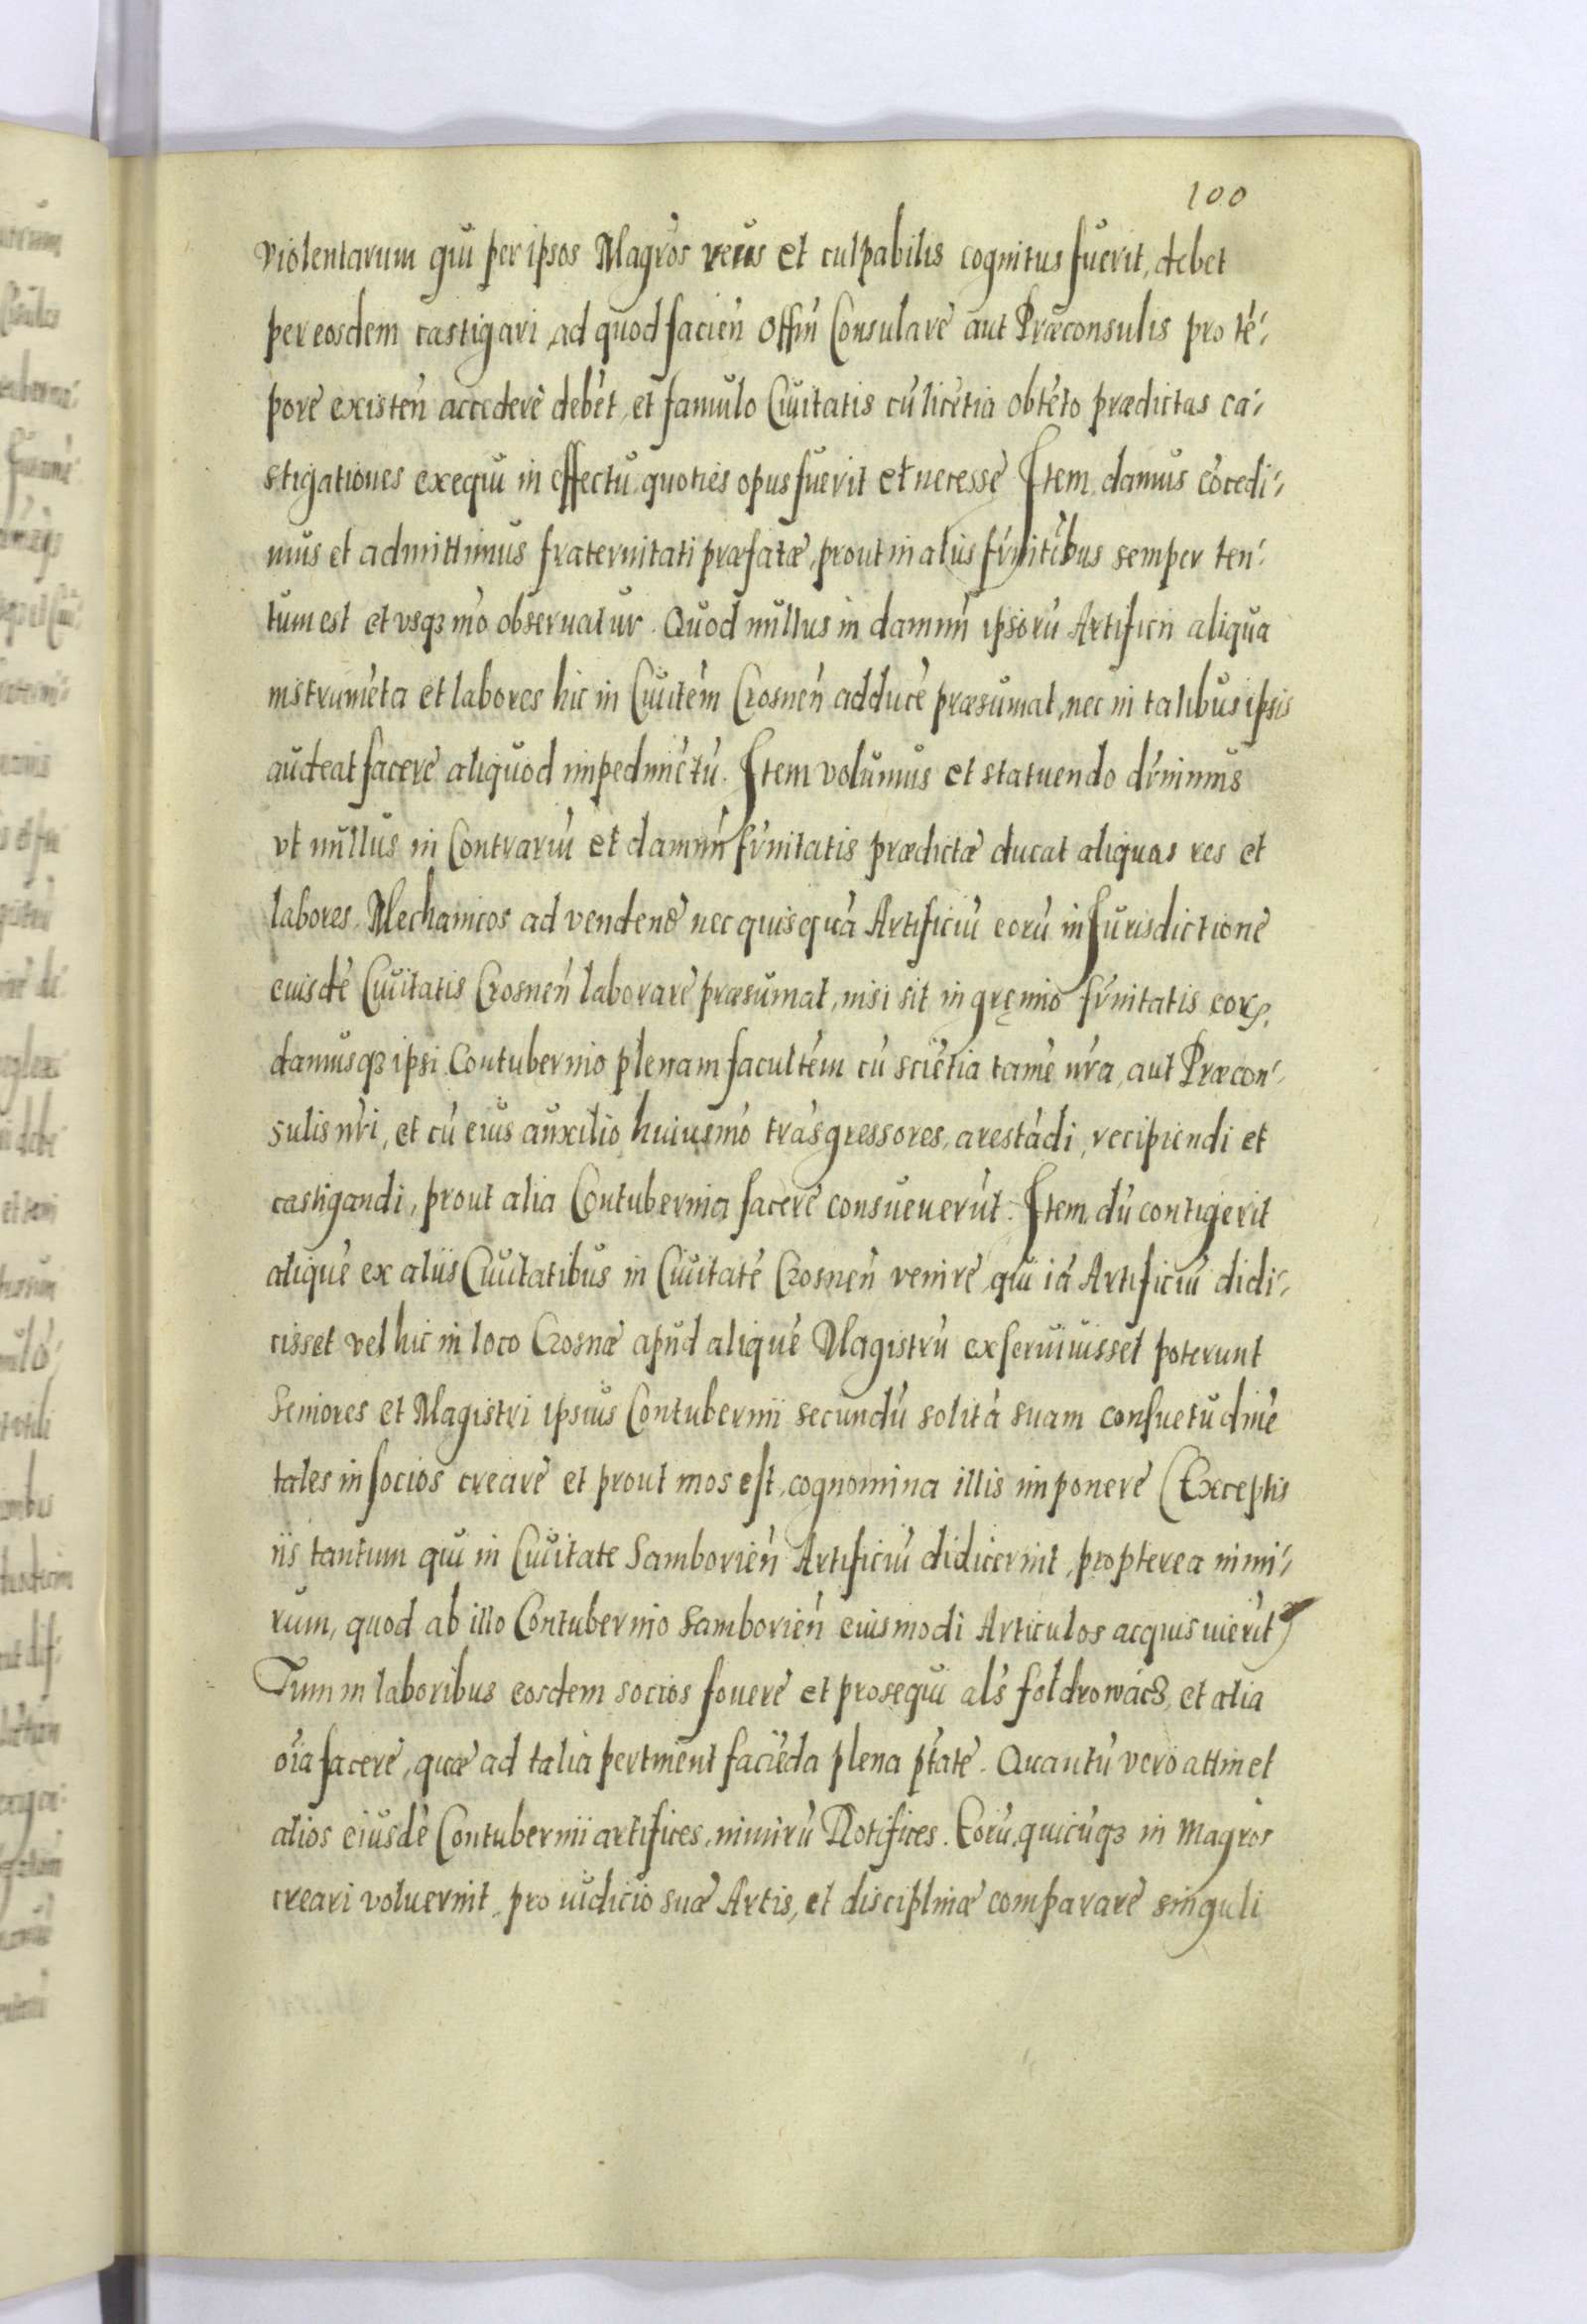 100
violentarum qui per ipsos Magr̃os reus et culpabilis cognitus fuerit, debet
per eosdem castigari, ad quod facień Offiń Consulare aut Præconsulis pro tē-
pore existeń accedere debet, et famulo Ciuitatis cū licētia obtēto prædictas ca-
stigationes exequi in effectu, quoties opus fuerit et necesse Item damus cōcedi-
mus et admittimus fraternitati præfatæ, prout in aliis fr̃nitībus semper ten-
tum est et vsqꝫ mō obseruatur. Quod nullus in damnū ipsorū Artificū aliqua
instrumēta et labores hic in Ciuitēm Crosneń adducē præsumat, nec in talibus ipsis
audeat facere aliquod impedimētū. Item volumus et statuendo dr̃nimus
vt nullus in Contrariū et damnū fr̃nitatis prædictæ ducat aliquas res et
labores Mechanicos ad vendenđ nec quisquā Artificiū eorū in Jurisdictione
euisdē Ciuitatis Crosneń laborare præsumat, nisi sit in gręmio fr̃nitatis eorꝝ,
damusqꝫ ipsi Contubernio plenam facultēm cū sciētia tamē nr̃a, aut Præcon-
sulis nr̃i, et cū eius auxilio huiusmō trāsgressores, arestādi, recipiendi et
castigandi, prout alia Contubernia facere consueuerūt. Item dū contigerit
aliquē ex aliis Ciuitatibus in Ciuitatē Crosneń venire, qui iā Artificiū didi-
cisset vel hic in loco Crosnæ apud aliquē Magistrū exseruiuisset poterunt
Seniores et Magistri ipsius Contubernii secundū solitā suam consuetudinē
tales in socios creare et prout mos est, cognomina illis imponere (Exceptis
iis tantum qui in Ciuitate Samborień Artificiū didicerint, propterea nimi-
rum, quod ab illo Contubernio Samborień eiusmodi Articulos acquisuierūt)
Tum in laboribus eosdem socios fouere et prosequi als foldrowáć, et alia
oīa facere, quæ ad talia pertinent faciēda plena ptāte. Quantū vero attinet
alios eiusdē Contubernii artifices, nimirū Rotifices. Eorū quicūqꝫ in Magr̃os
creari voluerint, pro iudicio suæ Artis, et disciplinæ comparare singuli